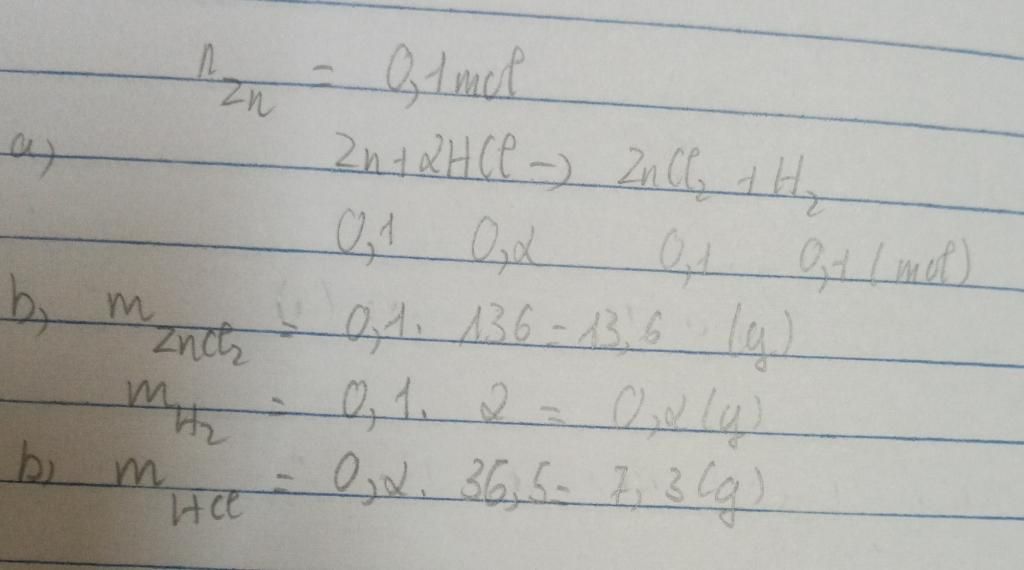 n Zn = 0,1 mol
a) Zn + 2HCl -> ZnCl2 + H2
0,1 0,2 0,1 0,1 (mol)
b, m ZnCl2 = 0,1. 136 = 13,6 (g)
m H2 = 0,1. 2 = 0,2 (g)
b) m HCl = 0,2. 36,5 = 7,3 (g)